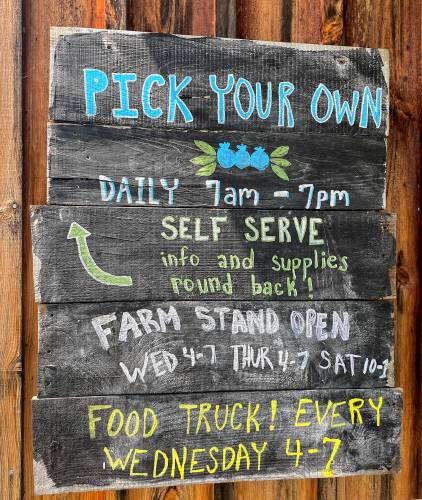 PICK YOUR OWN
DAILY 7am - 7pm
SELF SERVE
info and supplies
round back!
FARM STAND OPEN
WED 4-7 THUR 4-7 SAT 10-1
FOOD TRUCK! EVERY
WEDNESDAY 4-7